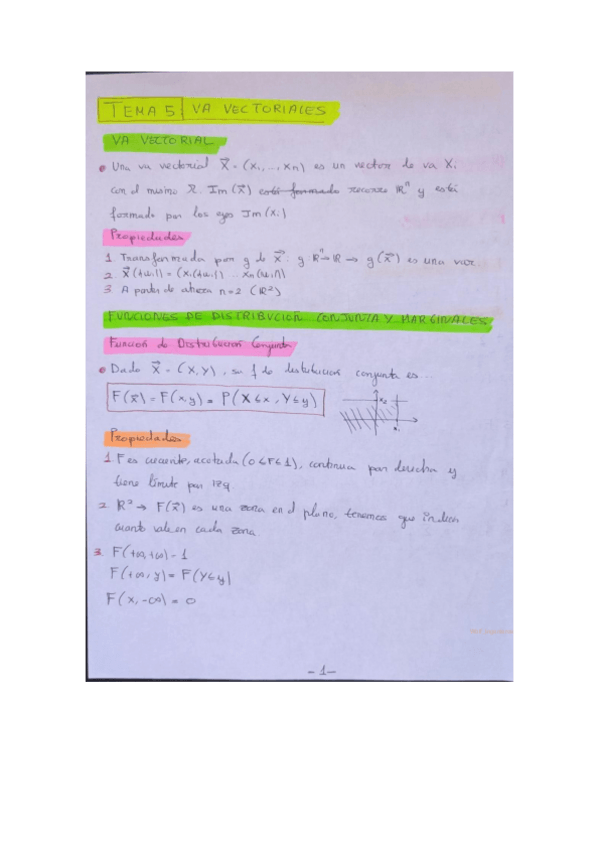 TEMA 5 VA VECTORIALES
VA VECTORIAL
• Una va vectorial X⃗ = (X₁, ..., Xn) es un vector de va Xi
con el mismo Ω. Im(X⃗) está formado recorre ℝⁿ y está
formado por los ejes Im(Xi)
Propiedades
1 Transformada por g de X⃗: g ℝⁿ→ℝ → g(X⃗) es una
2. = (X₁ ... Xn
3 A partir de ahora n=2 (ℝ²)
FUNCIONES DE DISTRIBUCION CONJUNTA Y MARGINALES
Función de Distribución Conjunta
• Dado X⃗ = (X, Y), su f de distribución conjunta es...
F(x⃗) = F(x,y) = P(X≤x, Y≤y)
Propiedades
1 F es creciente, acotada (0≤F≤1), continua por derecha y
tiene límite por izq.
2. ℝ² → F(x⃗) es una zona en el plano, tenemos que indicar
cuanto vale en cada zona.
3. F(+∞,+∞) = 1
F(+∞, y) = F(Y≤y)
F(x, -∞) = 0
- 1 -